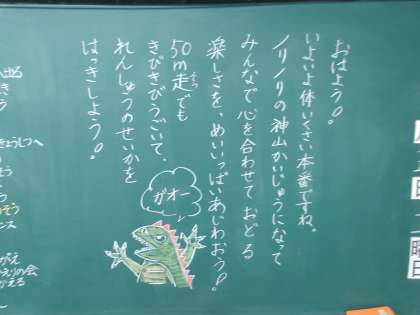 おはよう!
いよいよ体いくさい本番ですね。
ノリノリの神山かいじゅうになって
みんなで心を合わせておどる
楽しさを、めいいっぱいあじわおう!
50m走でも
そう
きびきびうごいて、
れんしゅうのせいかを
はっきしよう!
ガオー
日
曜日